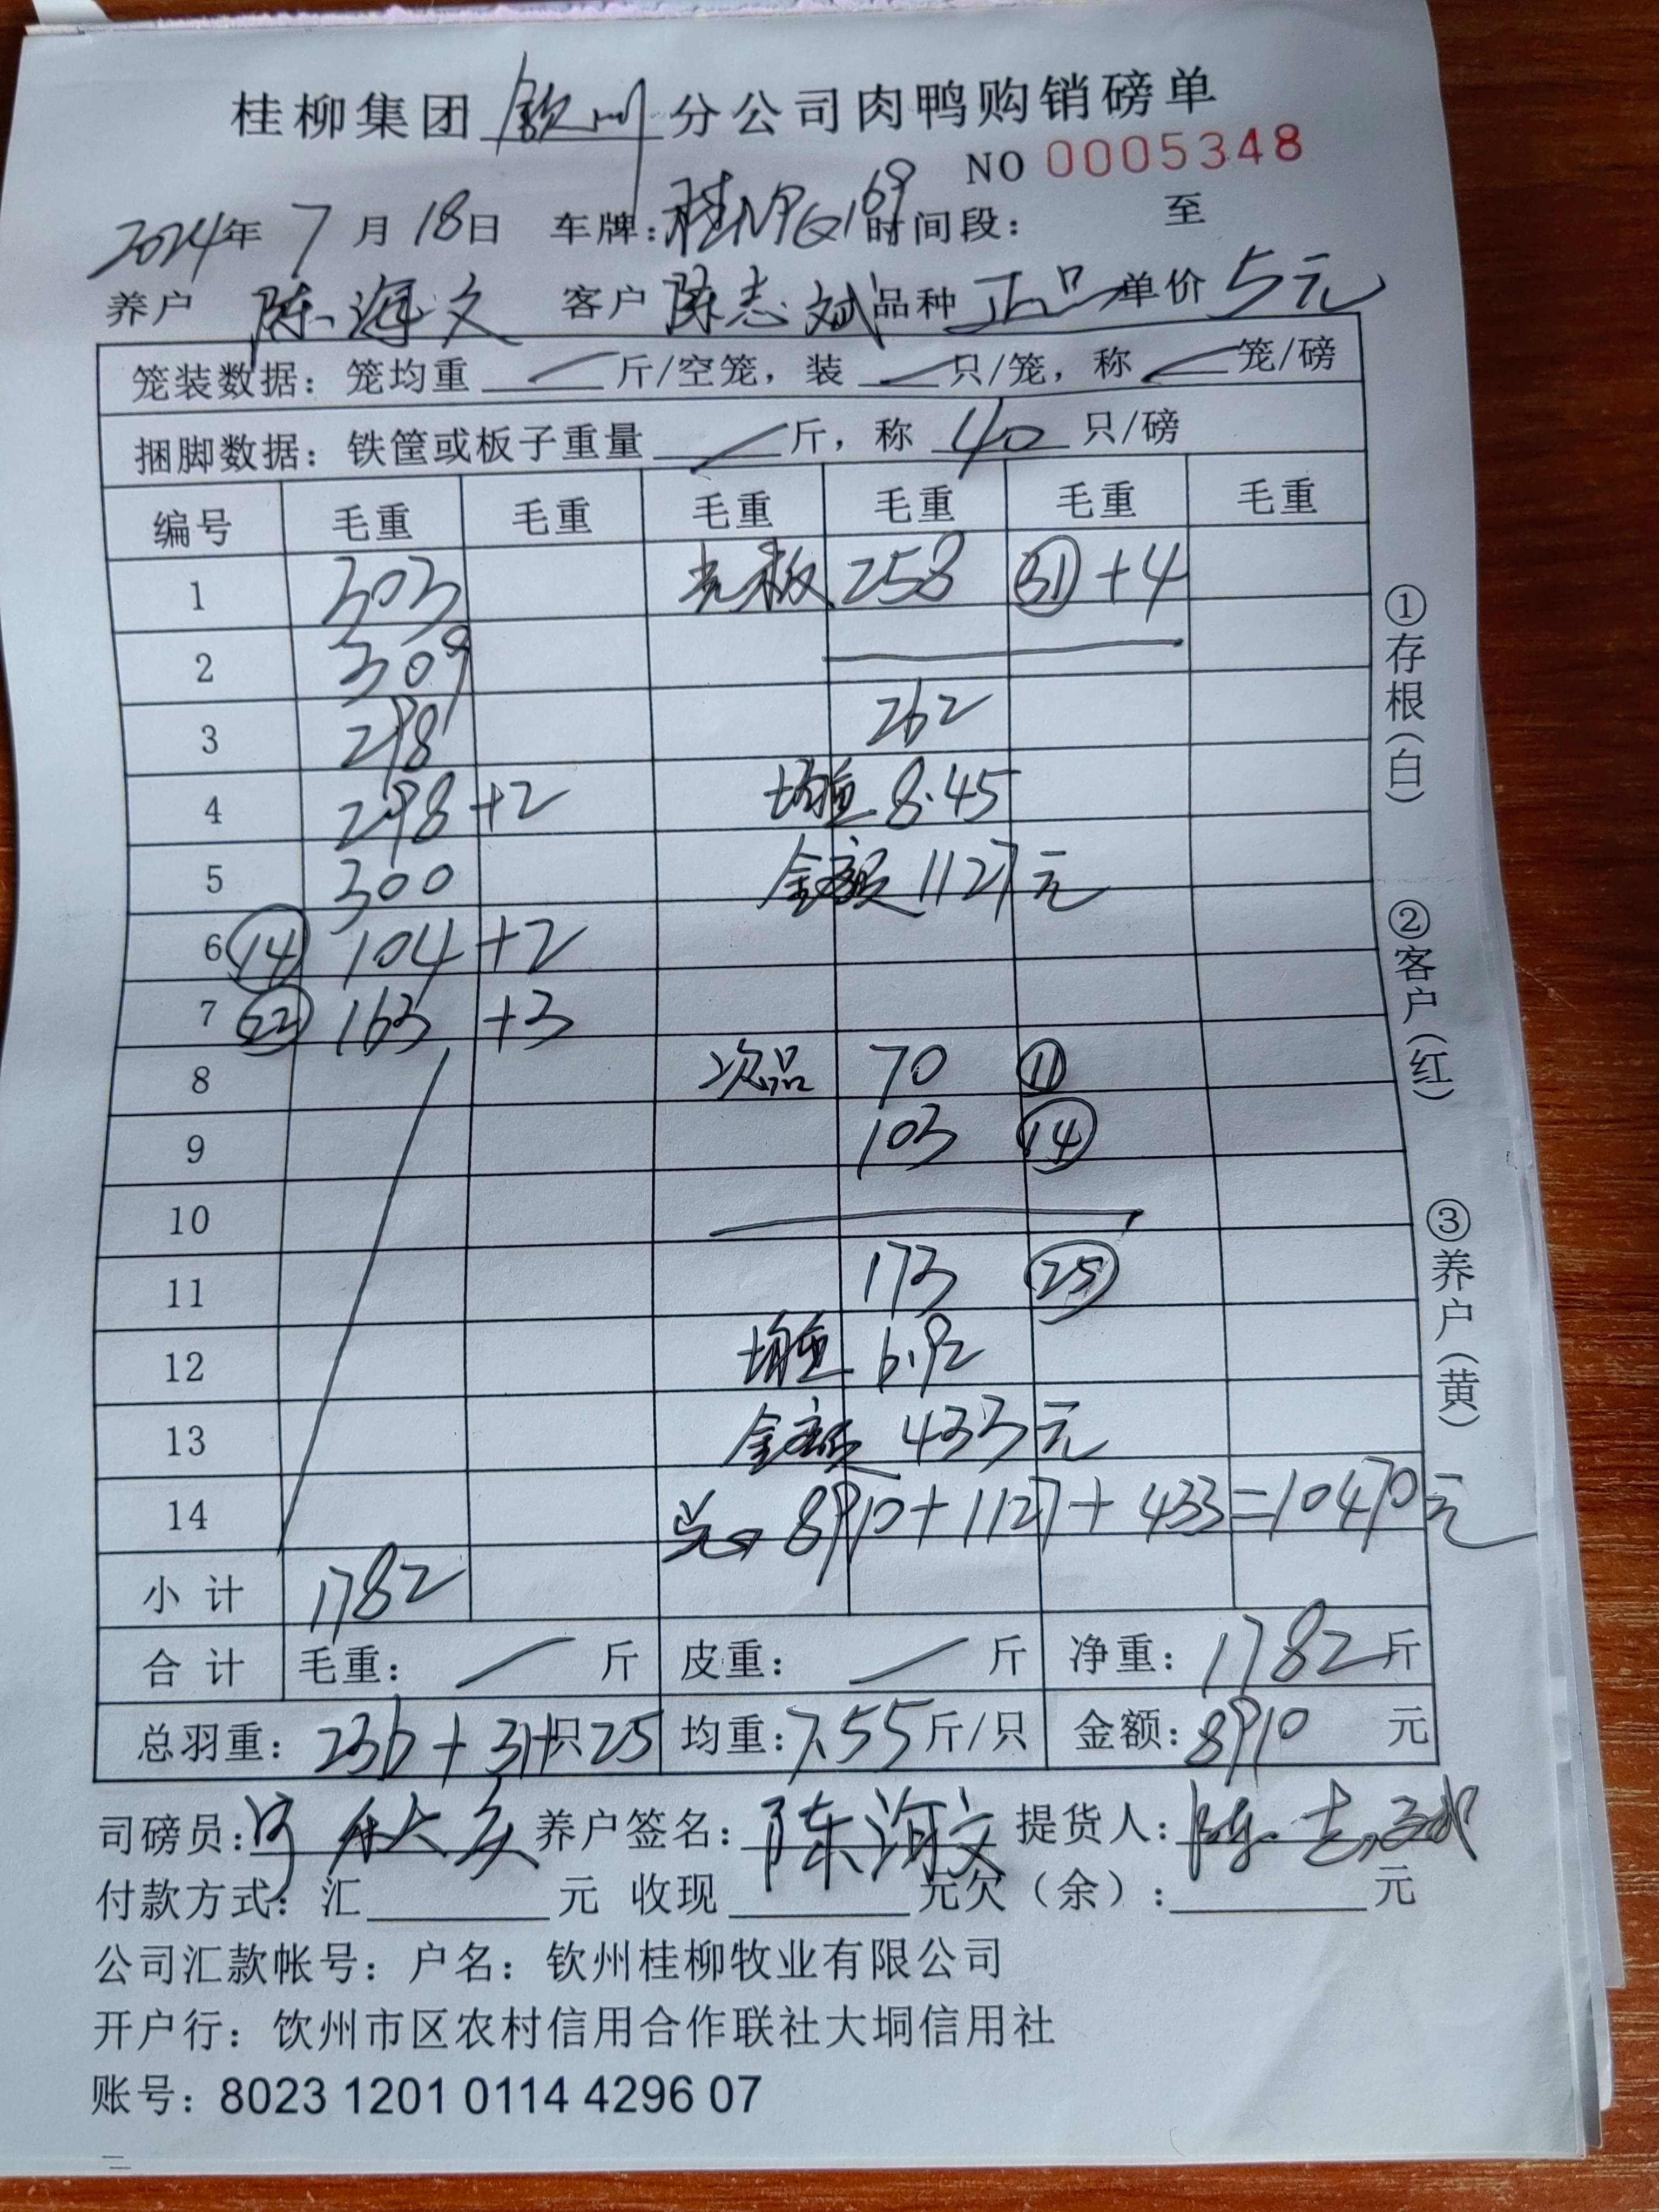 桂柳集团钦州分公司肉鸭购销磅单
NO 0005348
2024年 7月 18日 车牌: 时间段: 至
养户 陈海文 客户 陈志斌 品种 正品 单价 5元
笼装数据: 笼均重 斤/空笼, 装 只/笼, 称 笼/磅
捆脚数据: 铁筐或板子重量 斤, 称 40 只/磅
编号 毛重 毛重 毛重 毛重 毛重 毛重
1 303 光板 258 ㉛ +4
2 309
3 298 262
4 298 +2 均重 8.45
5 300 金额 1127元
6 ⑭ 104 +2
7 ㉒ 163 +3
8 次品 70 ⑪
9 103 ⑭
10
11 173 ㉕
12 均重 6.92
13 金额 433元
14 总 8910+1127+433=10470元
小计 1782
合计 毛重: 斤 皮重: 斤 净重: 1782斤
总羽重: 236+31+只25 均重: 7.55斤/只 金额: 8910 元
司磅员: 养户签名: 陈海文 提货人: 陈志斌
付款方式: 汇 元 收现 元欠(余): 元
公司汇款帐号: 户名: 钦州桂柳牧业有限公司
开户行: 钦州市区农村信用合作联社大垌信用社
账号: 8023 1201 0114 4296 07
①存根(白)
②客户(红)
③养户(黄)